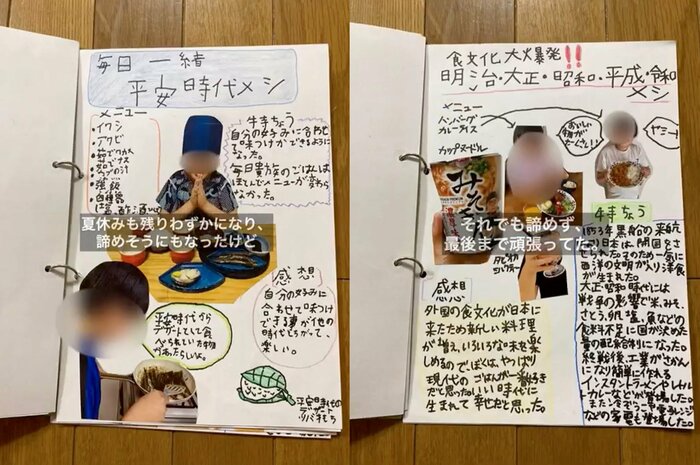 毎日一緒
平安時代メシ
メニュー
・イワシ
・アワビ
・強飯
特ちょう
自分の好みに合わせ
て味つけができるように
なった。
毎日貴族のごはんは
ほとんどメニューが変わら
なかった。
夏休みも残りわずかになり、
諦めそうにもなったけど
感想
自分の好みに
合わせて味つけ
できる事が他の
時代とちがって、
楽しい。
平安時代から
デザートとして食
べられていた物が
あったらしいよ。
平安時代の
デザート
食文化大爆発!!
明治・大正・昭和・平成・令和
メシ
メニュー
ハンバーグ
カレーライス
カップヌードル
おいしい
物が
たーくさん!!
ヤミー!
特ちょう
1853年黒船の来航
により日本は開国をさ
せられた。そのため一気に
西洋の文明が入り洋食
が生まれた。
大正・昭和時代には
戦争の影響で米、みそ、
さとう、卵、塩、魚などの
食料不足に国が決めた
量の配給制になった。
終戦後、工業がさか
んになり簡単に作れる
インスタントラーメンやレトル
トカレーなどが登場した。
また冷ぞう庫、電子レンジ
などの家電も登場した。
それでも諦めず、
最後まで頑張ってた。
感想
外国の食文化が日本に
来たため新しい料理
が増え、いろいろな味を楽
しめるので、ぼくは、やっぱり
現代のごはんが一番好き
だと思った。いい時代に
生まれて幸せだと思った。